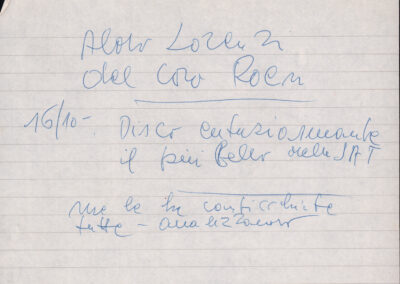 Aldo Lorenzi
del Coro Roen
16/10 - Disco entusiasmante
il più bello della SAT
me le ha
tutte -